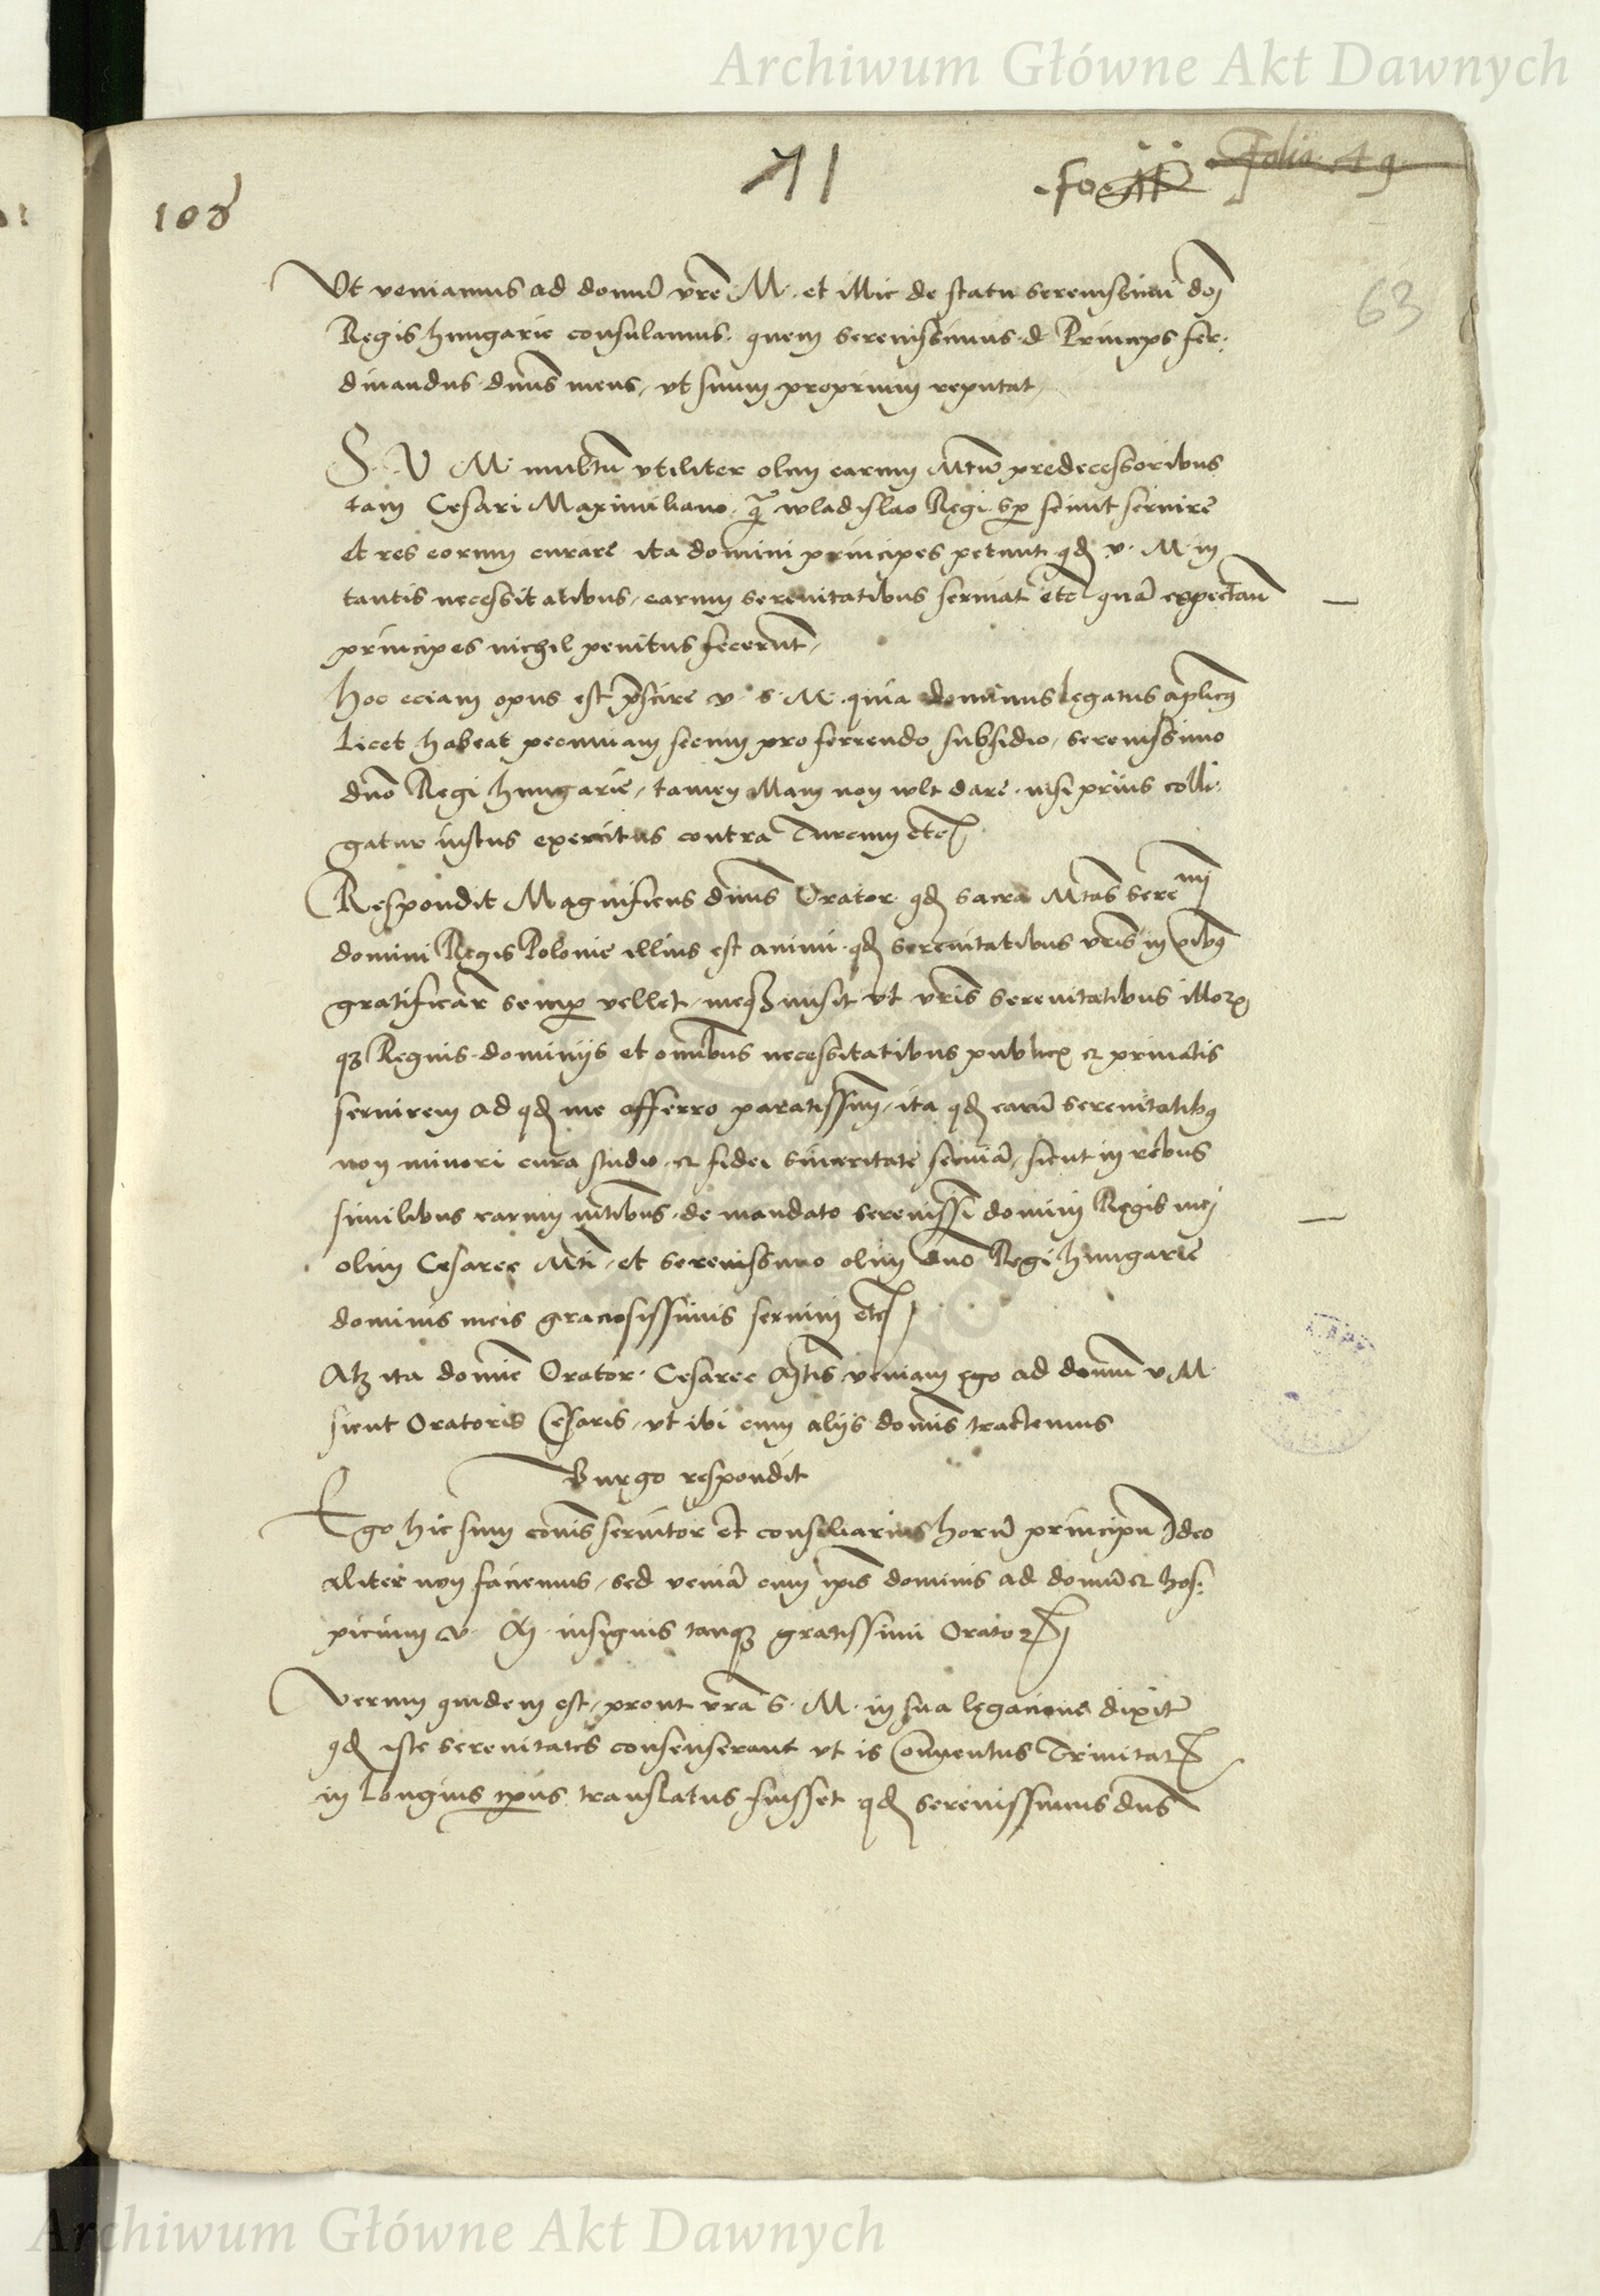 Archiwum Główne Akt Dawnych
71
Folio. 49.
108
63
Vt veniamus ad domũ vrẽ M. et illic de statu serenissimi doĩ
Regis hungarie consulamus. quem serenissimus d. Princeps fer.
dinandus dnũs meus, vt suum proprium reputat,
S. V. M. multũ vtiliter olim earum Mtũ predecessoribus
tam Cesari Maximiliano. q̃ wladislao Regi. sp sciuit seruire
et res eorum curare ita domini principes petunt qd v. M. in
tantis necessitatibus, earum serenitatibus seruiat etc quã expectan
principes nichil penitus fecerũt,
hoc eciam opus est p̃scire v. s. M. quia dominus legatus aplicus
licet habeat pecuniam secum pro ferrendo subsidio, serenissimo
dnõ Regi hungarie, tamen illam non wlt dare. nisi prius colli.
gatur iustus exercitus contra Turcum etc
Respondit Magnificus dnũs Orator. qd sacra Mtãs sereni
domini Regis Polonie illius est animi. qd serenitatibus vrĩs in oĩbus
gratificare semp vellet, meqз misit vt vrĩs serenitatibus illoꝝ
qз Regnis dominijs et omĩbus necessitatibus public et priuatis
seruirem ad qd me offerro paratissim, ita qd earũ serenitatibus
non minori cura studio et fidei sinceritate seruiã, sicut in rebus
similibus earum mtĩbus de mandato serenissi domini Regis mei
olim Cesaree Mtĩ, et serenissimo olim dnõ Regi hungarie
dominis meis graciosissimis seruiui etc
Atqз ita domĩe Orator. Cesaree Mtĩs veniam ego ad domũ v M.
sicut Oratoris Cesaris, vt ibi cum alijs domĩs tractemus
Burgo respondit
Ego hic sum comĩs seruitor et consiliarius horũ principũ Ideo
aliter non faciemus, sed veniã cum ipĩs dominis ad domũ et hos.
picium v. M. insignis tanqз gratissimi Oratoꝝ
Verum quidem est, prout vrã s. M. in sua legacione dixit
qd iste serenitates consenserant vt is Conuentus Trinitat
in longius tp̃us translatus fuisset qd serenissimus dnũs
Archiwum Główne Akt Dawnych